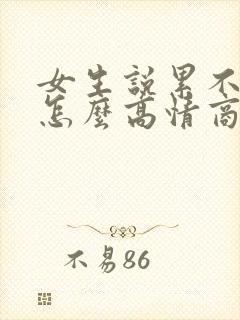 女生說累不
怎麼高情商
不易86